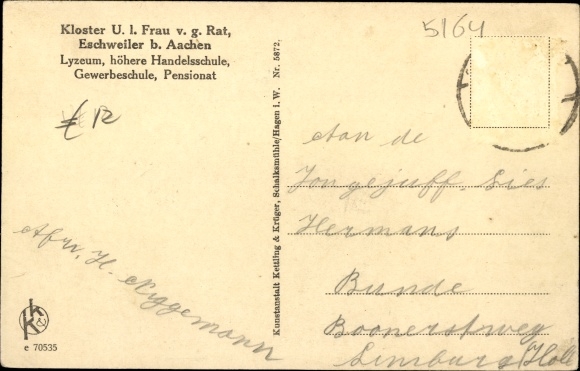 Kloster U. l. Frau v. g. Rat,
Eschweiler b. Aachen
Lyzeum, höhere Handelsschule,
Gewerbeschule, Pensionat
5164
€ 12
Kunstanstalt Kettling & Krüger, Schalksmühle/Hagen i. W. Nr. 5872.
Aan de
Jongejuff. Lies
Hermans
Bunde
Boonerstrweg
Limburg (Holl
Afz. H. Niggemann
K & K
e 70535